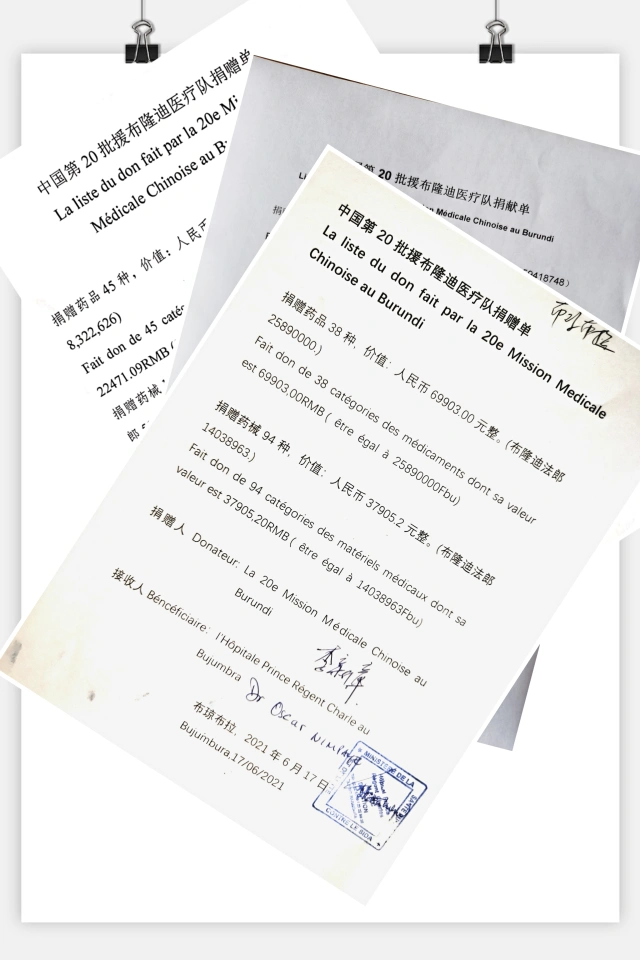 中国第 20 批援布隆迪医疗队捐赠单
La liste du don fait par la 20e Mi
Médicale Chinoise au B
捐赠药品 45 种，价值：人民币
8,322,626)
Fait don de 45 caté
22471.09RMB (
捐赠药械
郎
第 20 批援布隆迪医疗队捐献单
on Médicale Chinoise au Burundi
0418748）
中国第 20 批援布隆迪医疗队捐赠单
La liste du don fait par la 20e Mission Medicale
Chinoise au Burundi
捐赠药品 38 种，价值：人民币 69903.00 元整。(布隆迪法郎
25890000.)
Fait don de 38 catégories des médicaments dont sa valeur
est 69903.00RMB ( être égal à 25890000Fbu)
捐赠药械 94 种，价值：人民币 37905.2 元整。(布隆迪法郎
14038963.)
Fait don de 94 catégories des matériels médicaux dont sa
valeur est 37905.20RMB ( être égal à 14038963Fbu)
捐赠人 Donateur: La 20e Mission Médicale Chinoise au
Burundi
接收人 Béncéficiaire: l'Hôpitale Prince Régent Charle au
Bujumbra
Dr Oscar
布琼布拉, 2021 年 6 月 17 日
Bujumbura,17/06/2021
MINISTERE DE LA SANTE
CONTRE LE SIDA